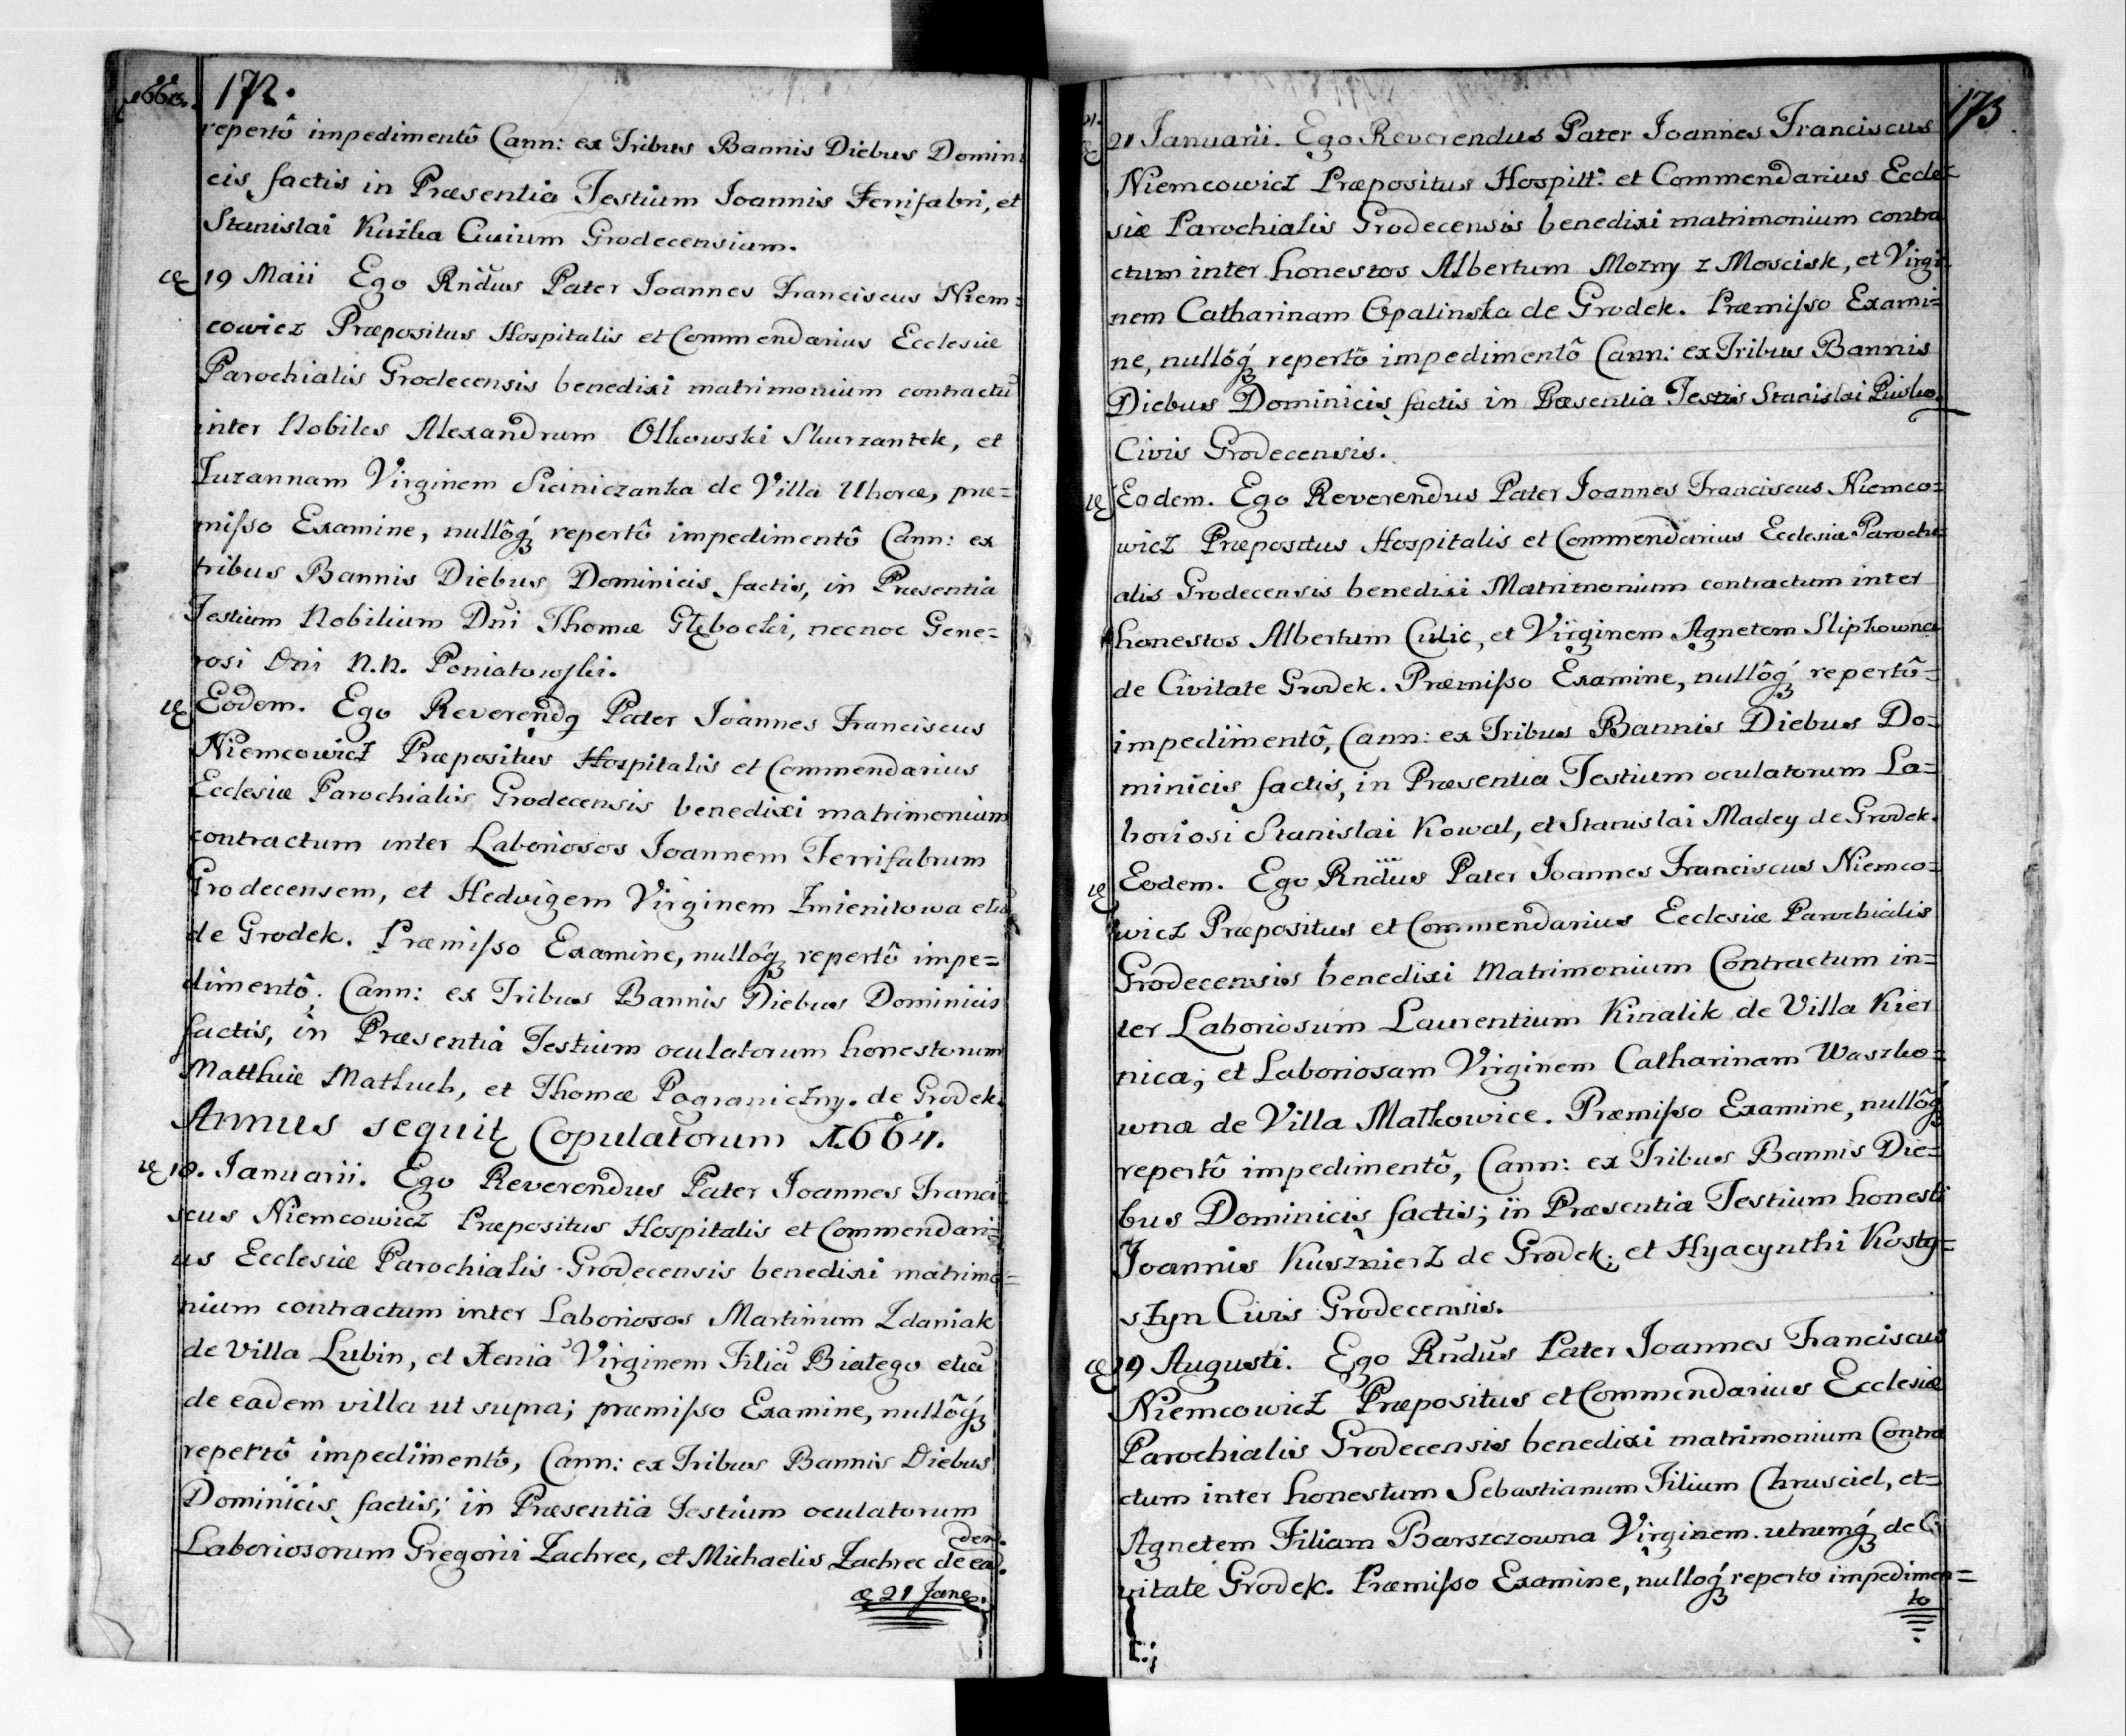 1663. 172.
repertô impedimentô Cann: ex Tribus Bannis Diebus Domini
cis factis in Præsentia Testium Joannis Ferrifabri, et
Stanislai Kuźba Civium Grodecensium.
19 Maii Ego Rndus Pater Joannes Franciscus Niem=
cowicz Præpositus Hospitalis et Commendarius Ecclesiæ
Parochialis Grodecensis benedixi matrimonium contractū
inter Nobiles Alexandrum Olkowski Skurzantek, et
Zuzannam Virginem Siciniczanka de Villa Uhorce, præ=
misso Examine, nullôq́ȝ repertô impedimentô Cann: ex
tribus Bannis Diebus Dominicis factis, in Præsentia
Testium Nobilium Dni Thomæ Głębocki, necnoc Gene=
rosi Dni N.N. Poniatowski.
Eodem. Ego Reverendq Pater Joannes Franciscus
Niemcowicz Præpositus Hospitalis et Commendarius
Ecclesiæ Parochialis Grodecensis benedixi matrimonium
contractum inter Laboriosos Joannem Ferrifabrum
Grodecensem, et Hedvigem Virginem Imienitowa etiā
de Grodek. Præmisso Examine, nullóq́ȝ repertô impe=
dimentô. Cann: ex Tribus Bannis Diebus Dominicis
factis, in Præsentia Testium oculatorum honestorum
Matthiæ Matluch, et Thomæ Pograniczny. de Grodek.
Annus sequit Copulatorum 1664.
18. Januarii. Ego Reverendus Pater Joannes Franci=
scus Niemcowicz Præpositus Hospitalis et Commendari=
us Ecclesiæ Parochialis Grodecensis benedixi matrimo=
nium contractum inter Laboriosos Martinum Zdaniak
de Villa Lubin, et Xeniā Virginem Filiā Białego etiā
de eadem villa ut supra; præmisso Examine, nullôq́ȝ
repertô impedimentô, Cann: ex Tribus Bannis Diebus
Dominicis factis; in Præsentia Testium oculatorum
Laboriosorum Gregorii Zachrec, et Michaelis Zachrec de ea
dem.
21 Jane.
173
21 Januarii. Ego Reverendus Pater Joannes Franciscus
Niemcowicz Præpositus Hospitt: et Commendarius Eccle=
siæ Parochialis Grodecensis benedixi matrimonium contra
ctum inter honestos Albertum Mozny z Moscisk, et Virgi=
nem Catharinam Opalinska de Grodek. Præmisso Exami=
ne, nullóq́ȝ repertô impedimentô Cann: ex Tribus Bannis
Diebus Dominicis factis in Præsentia Testis Stanislai
Civis Grodecensis.
Eodem. Ego Reverendus Pater Joannes Franciscus Niemco=
wicz Præpositus Hospitalis et Commendarius Ecclesiæ Parochi=
alis Grodecensis benedixi Matrimonium contractum inter
honestos Albertum Culic, et Virginem Agnetem Slipkowna
de Civitate Grodek. Præmisso Examine, nullôq́ȝ repertô=
impedimentô, Cann: ex Tribus Bannis Diebus Do=
minicis factis, in Præsentia Testium oculatorum La=
boriosi Stanislai Kowal, et Stanislai Madey de Grodek.
Eodem. Ego Rndus Pater Joannes Franciscus Niemco=
wicz Præpositus et Commendarius Ecclesiæ Parochialis
Grodecensis benedixi Matrimonium Contractum in=
ter Laboriosum Laurentium Kiralik de Villa Kier
nica; et Laboriosam Virginem Catharinam Waszko=
wna de Villa Małkowice. Præmisso Examine, nullôq́ȝ
repertô impedimentô, Cann: ex Tribus Bannis Die=
bus Dominicis factis; in Præsentia Testium honesti
Joannis Kusznierz de Grodek; et Hyacynthi Kosty=
szyn Civis Grodecensis.
19 Augusti. Ego Rndus Pater Joannes Franciscus
Niemcowicz Præpositus et Commendarius Ecclesiæ
Parochialis Grodecensis benedixi matrimonium Contra
ctum inter honestum Sebastianum Filium Chrusciel, et=
Agnetem Filiam Barszczowna Virginem. utrumq́ȝ de Ci
vitate Grodek. Præmisso Examine, nulloq́ȝ reperto impedimen=
to